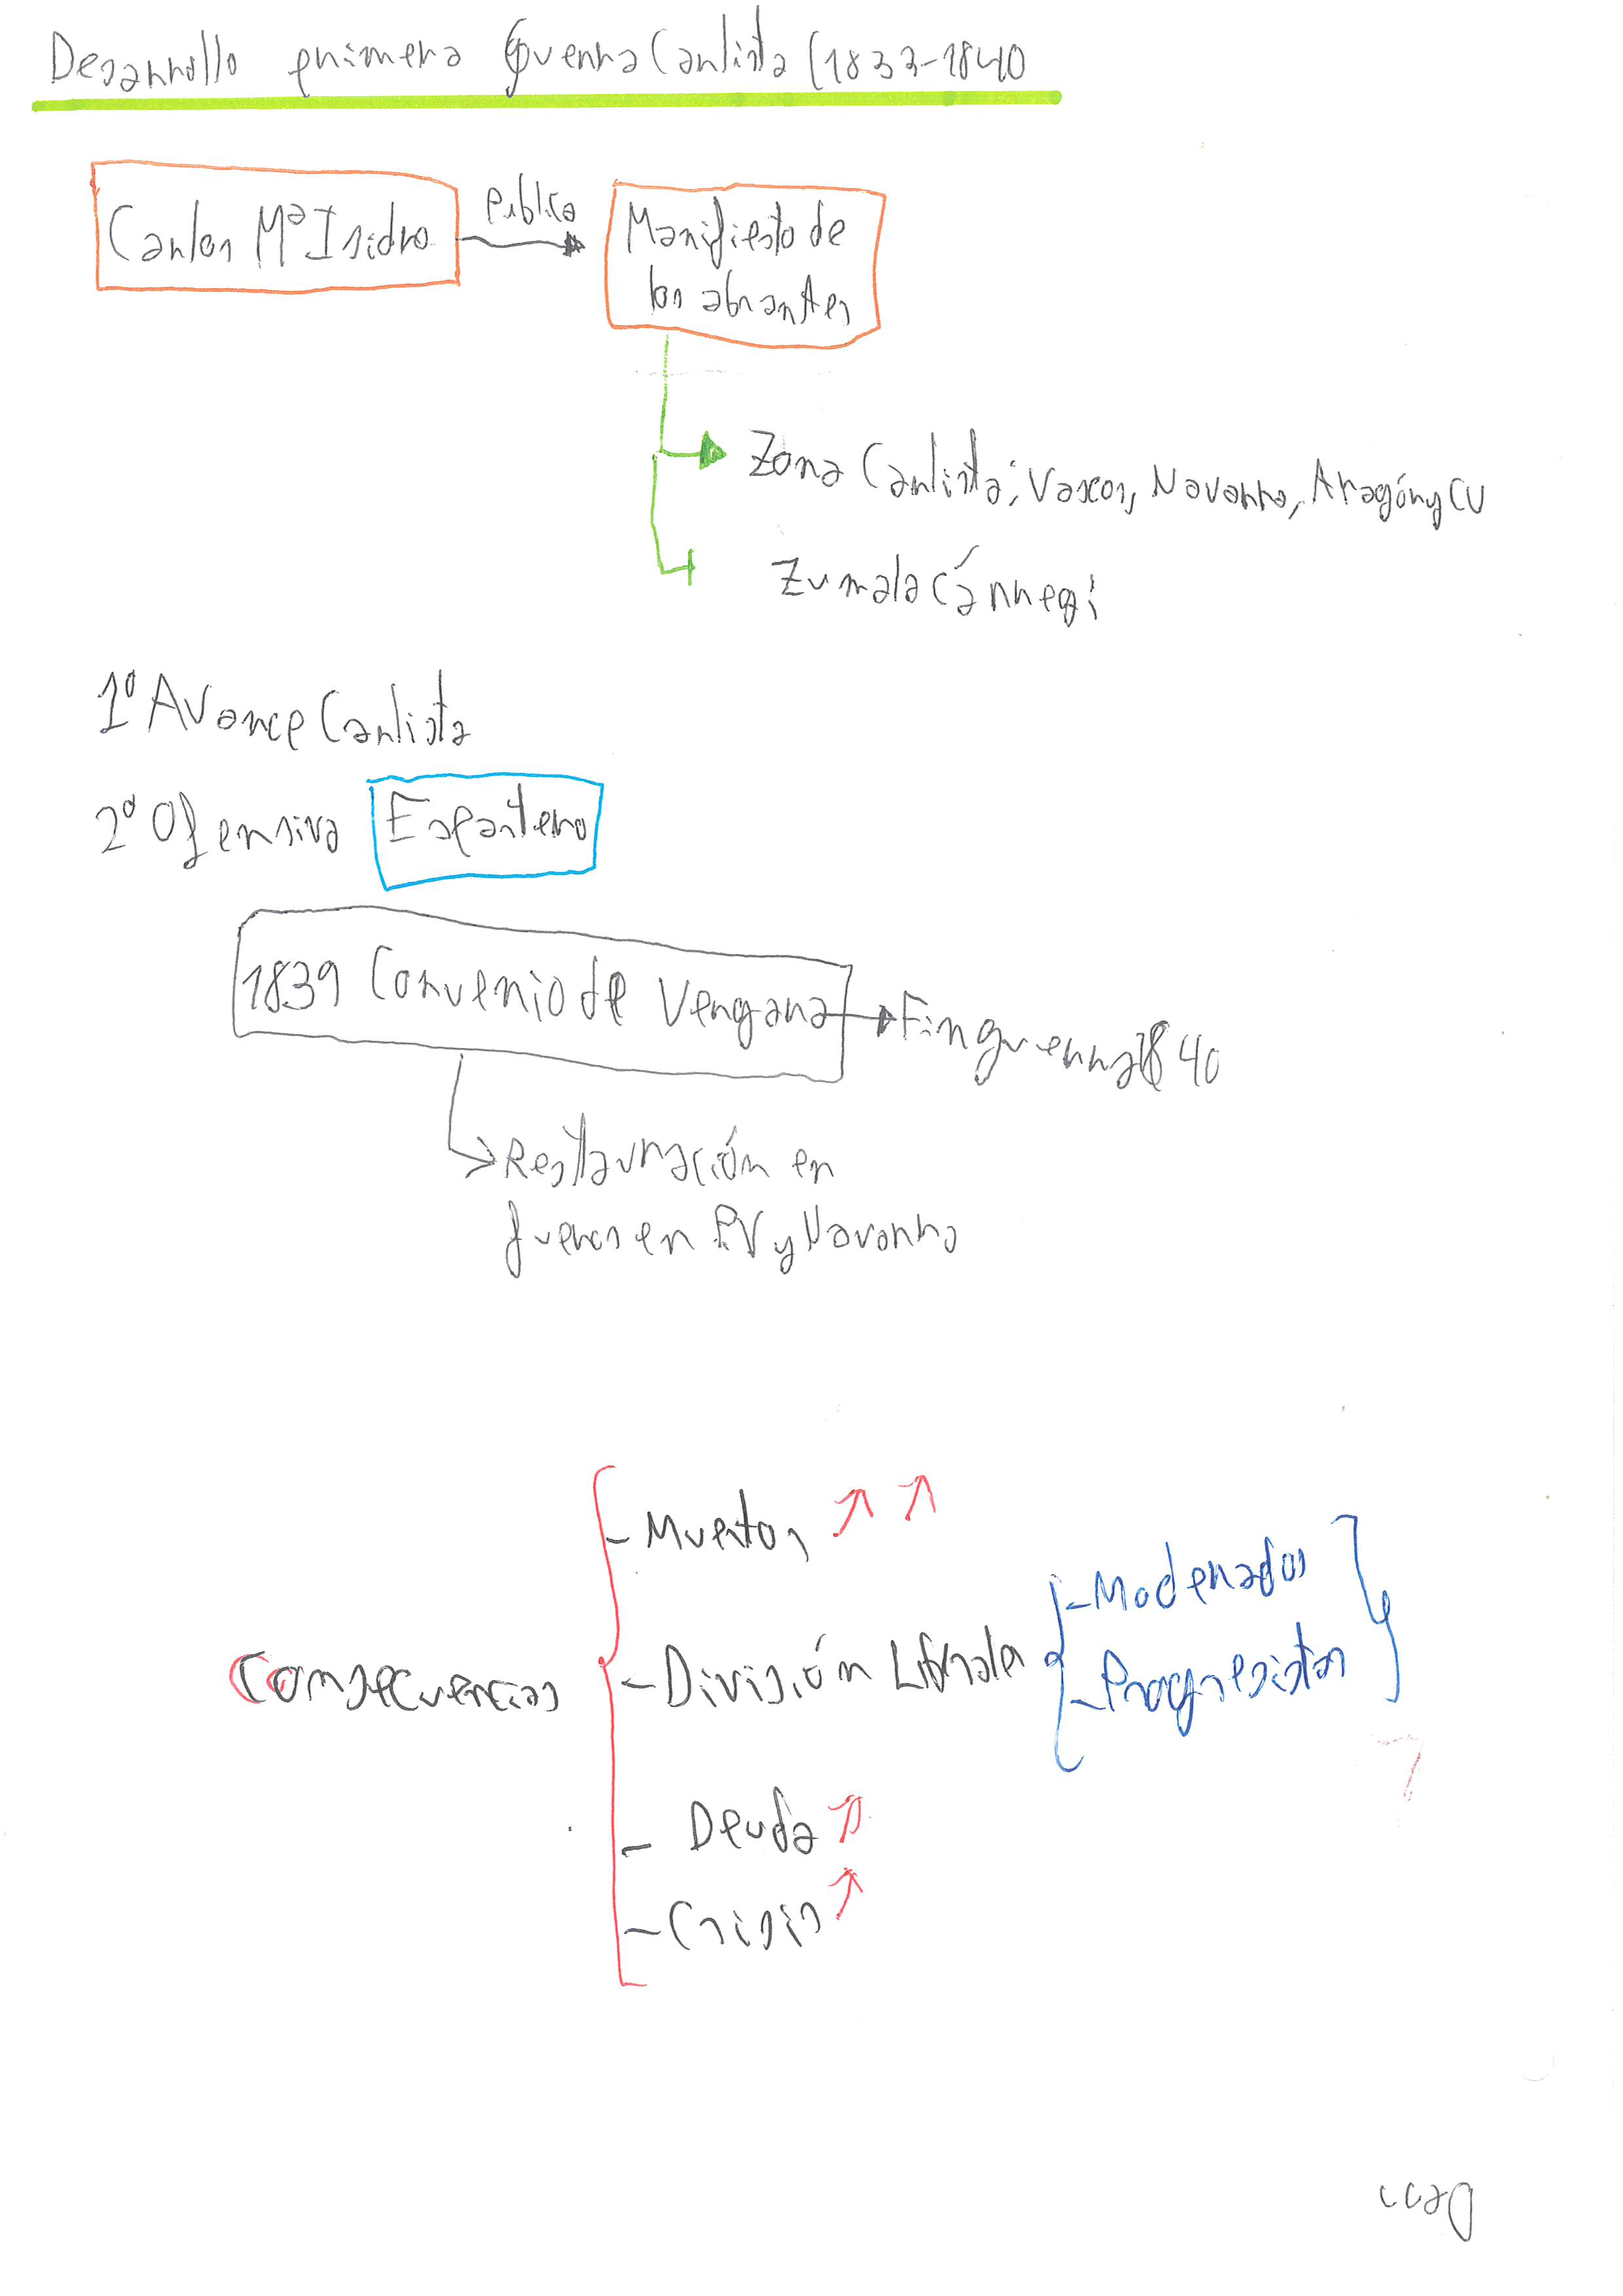 Desarrollo primera Guerra Carlista (1833-1840
Carlos Mª Isidro
publica
Manifiesto de
los abrantes
Zona Carlista: Vascos, Navarra, Aragón y CV
Zumalacárregi
1º Avance Carlista
2º Ofensiva Espartero
1839 Convenio de Vergara
Fin guerra 1840
Restauración en
fueros en PV y Navarra
Consecuencias
- Muertos ↗ ↗
- División Liberales
- Moderados
- Progresistas
- Deuda ↗
- Crisis ↗